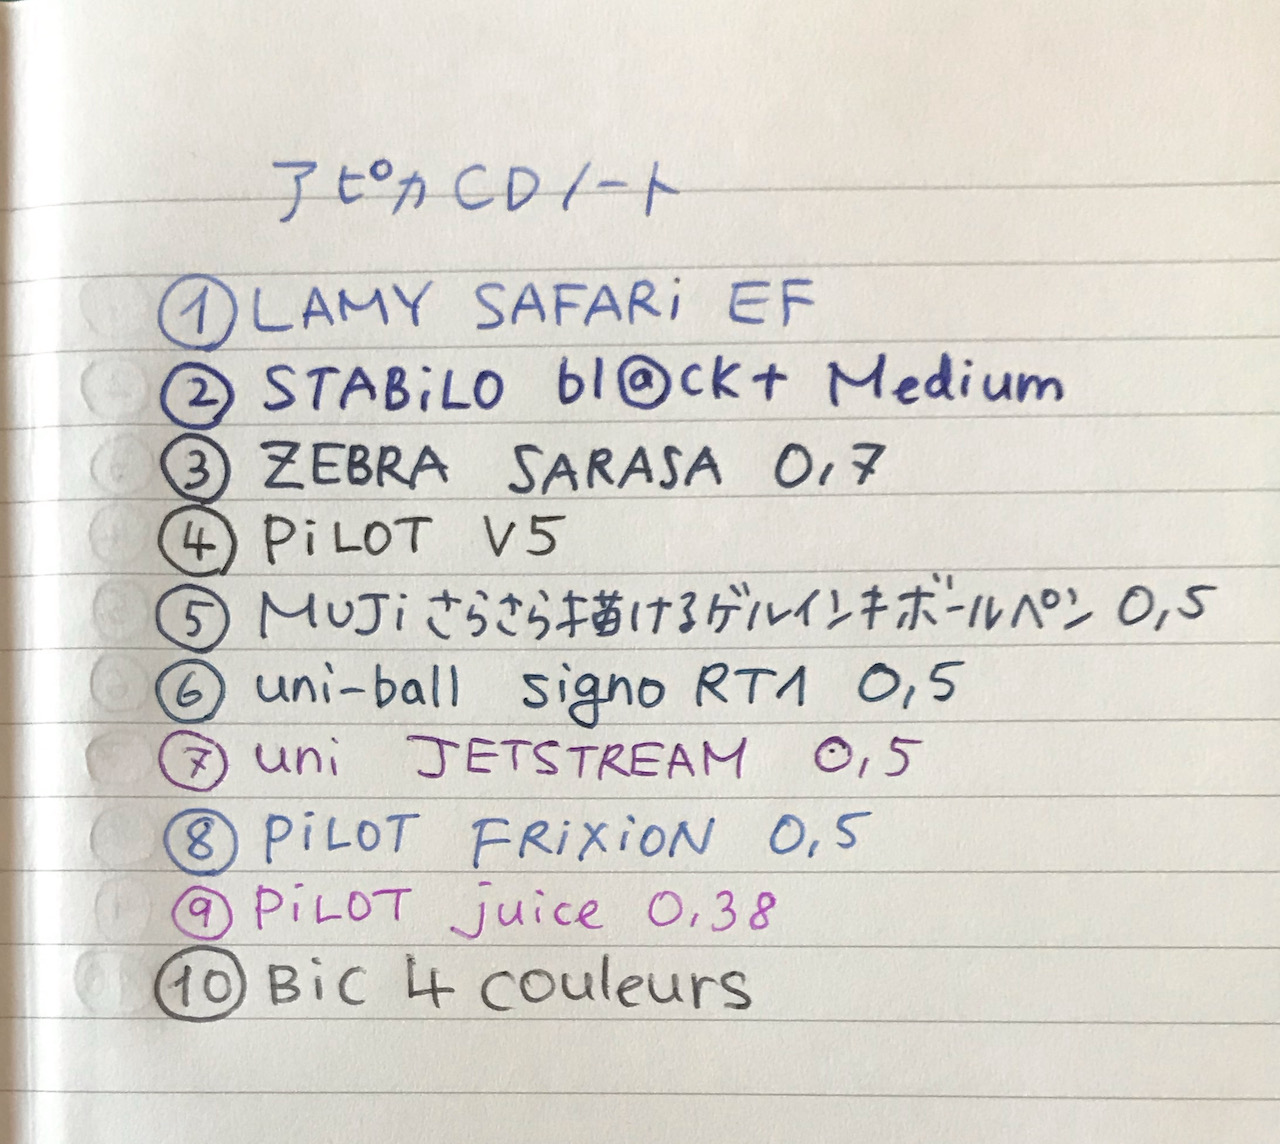 アピカCDノート
① LAMY SAFARi EF
② STABiLO bl@ck+ Medium
③ ZEBRA SARASA 0,7
④ PiLOT V5
⑤ MUJi さらさら描けるゲルインキボールペン 0,5
⑥ uni-ball signo RT1 0,5
⑦ uni JETSTREAM 0,5
⑧ PiLOT FRiXiON 0,5
⑨ PiLOT juice 0,38
⑩ BiC 4 couleurs